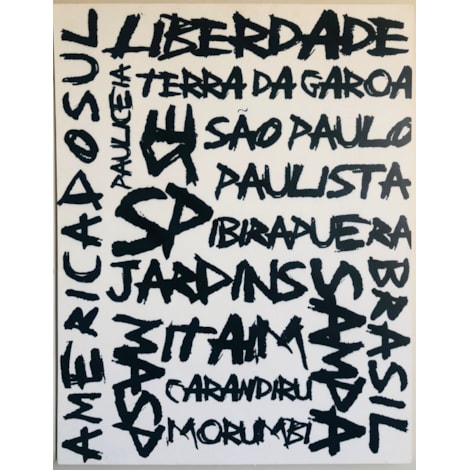 AMERICA DO SUL
LIBERDADE
PAULICEIA
TERRA DA GAROA
SÉ
SÃO PAULO
PAULISTA
SP
IBIRAPUERA
JARDINS
MASP
ITAIM
CARANDIRU
MORUMBI
SAMPA
BRASIL